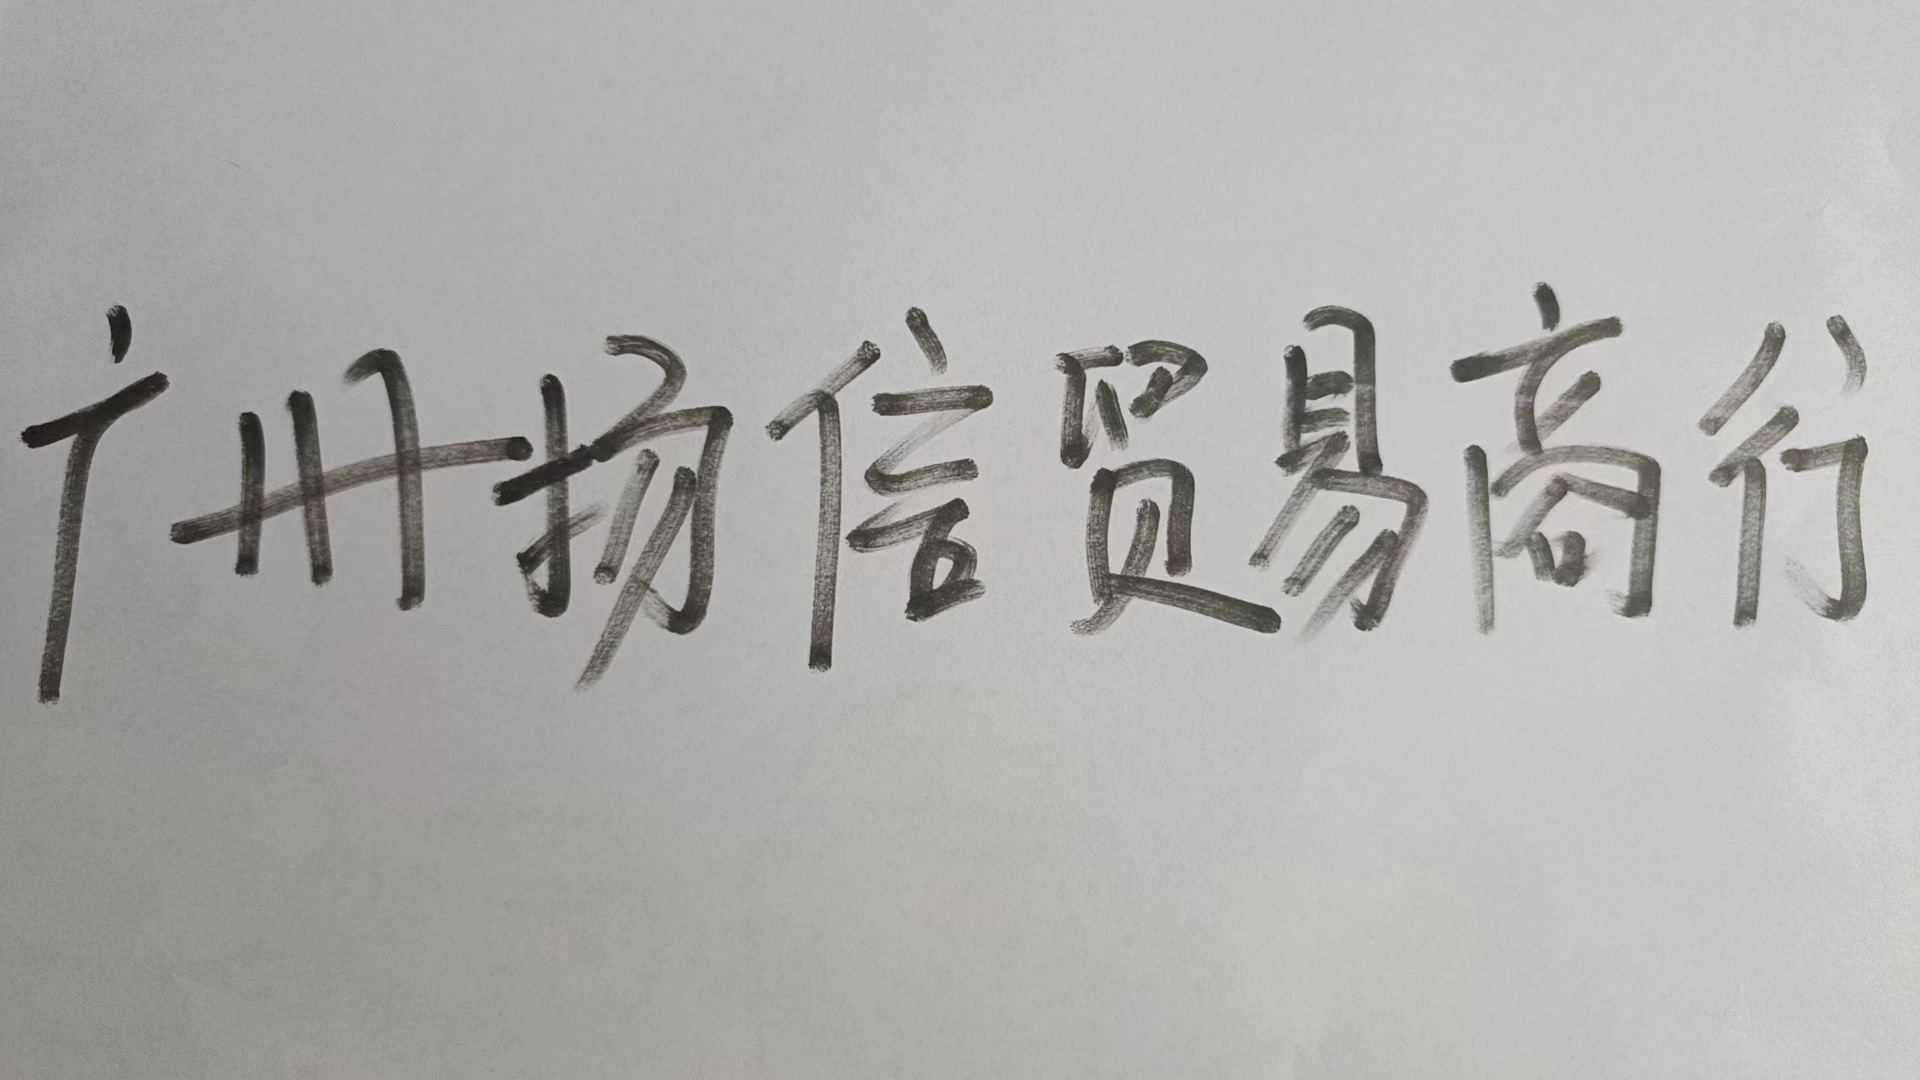 广册扬信贸易商行